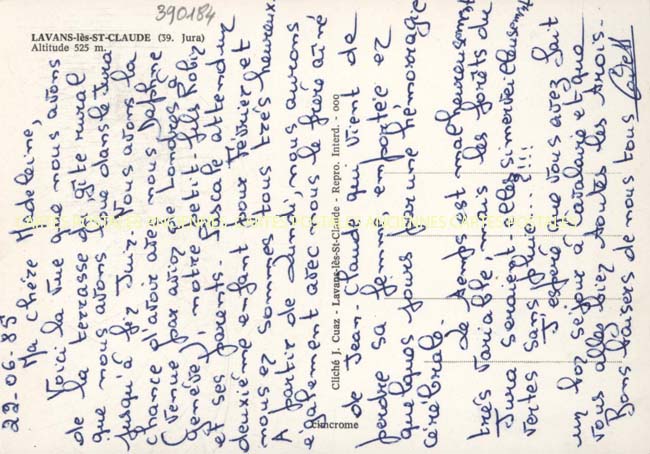 390184
LAVANS-lès-ST-CLAUDE (39. Jura)
Altitude 525 m.
22-06-85
Ma chère Madeleine,
Voici la vue que nous avons
de la terrasse du gîte rural
que nous avons loué dans le Jura
jusqu'à fin Juin. Nous avons la
chance d'avoir avec nous Daphné
(venue par avion de Londres à
Genève), notre petit fils Robin
et ses parents. Pascale attendur
deuxième enfant pour Février et
nous en sommes tous très heureux.
A partir de Lundi, nous aurons
également avec nous le frère aîné
de Jean-Claude qui vient de
perdre sa femme emportée en
quelques jours par une hémorragie
cérébrale.
Le temps est malheureusement
très variable, mais les forêts du
Jura seraient-elles si merveilleusement
vertes sans pluie...?!!!
J'espère que vous avez fait
un bon séjour à Cavalaire et que
vous allez bien toutes les trois.
Bons baisers de nous tous
Cliché J. Cuaz - Lavans-lès-St-Claude - Repro. Interd. - 000
cimcrome
CARTES POSTALES ANCIENNES CARTES POSTALES ANCIENNES CARTES POSTALES